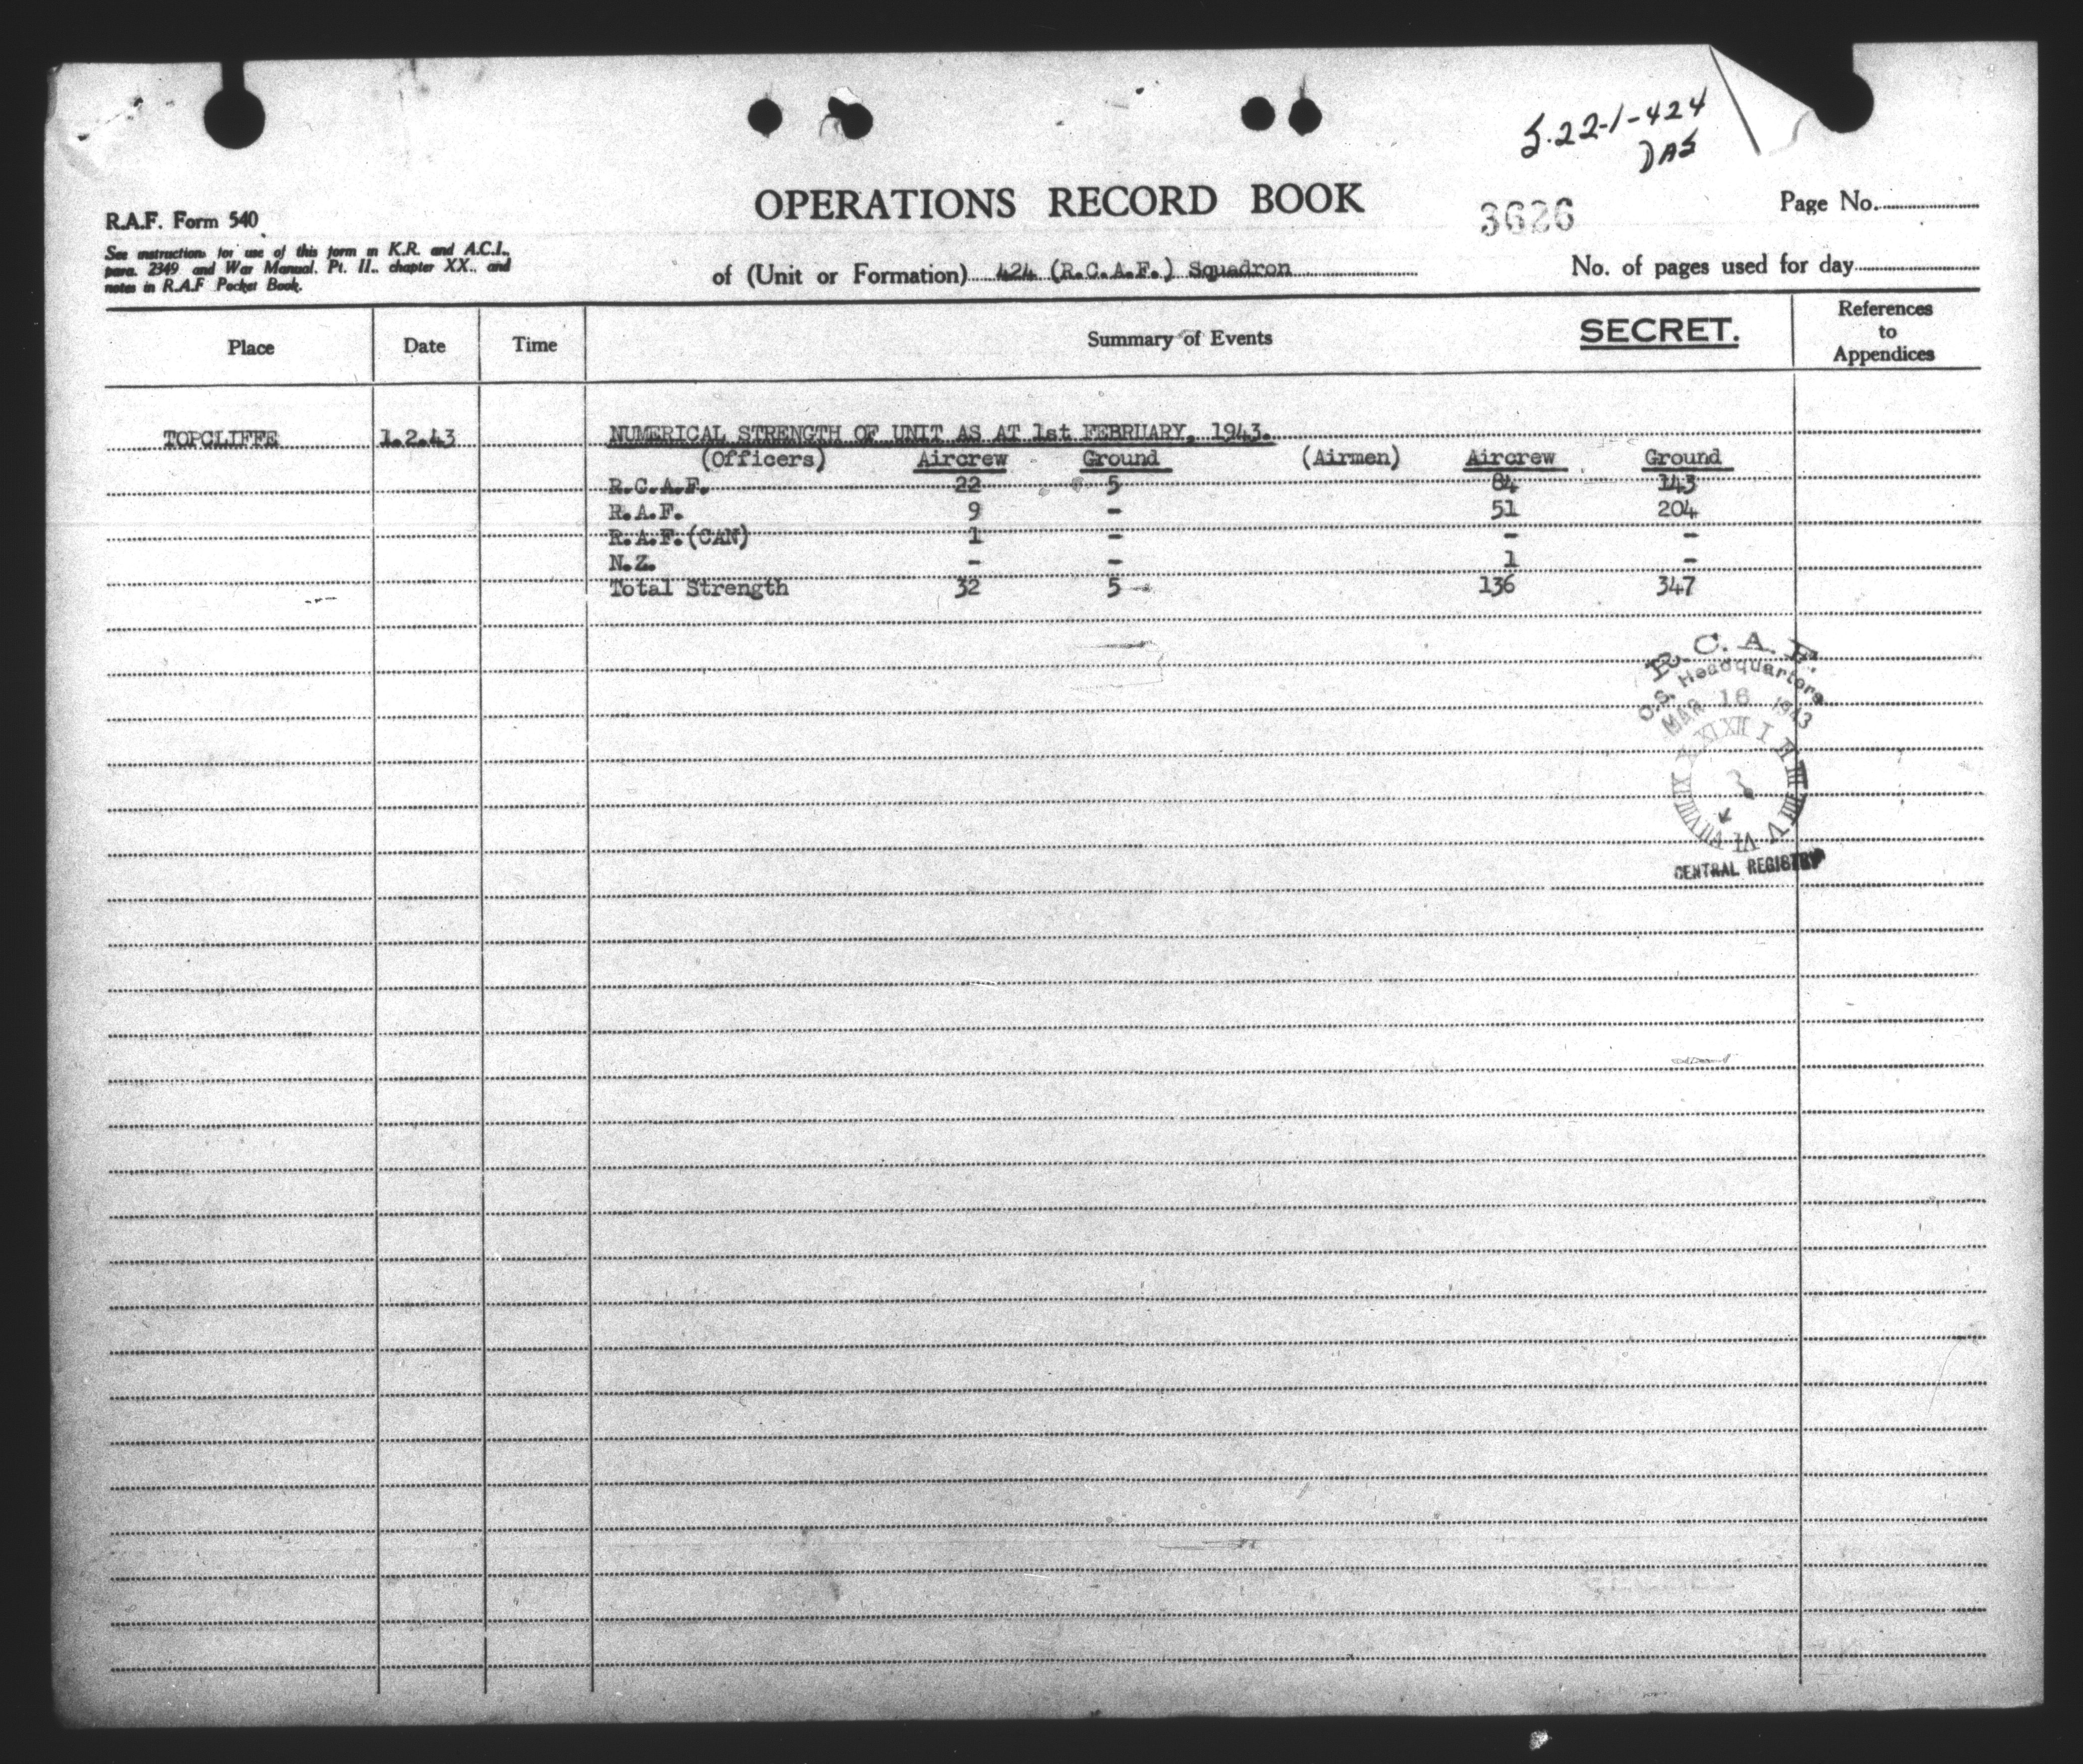 S.22-1-424
DAS
OPERATIONS RECORD BOOK
3626
Page No.
R.A.F. Form 540
See instructions for use of this form in K.R. and A.C.I.,
para. 2349 and War Manual. Pt. II., chapter XX., and
notes in R.A.F Pocket Book.
of (Unit or Formation) 424 (R.C.A.F.) Squadron
No. of pages used for day
Place Date Time Summary of Events SECRET. References to Appendices
TOPCLIFFE 1.2.43 NUMERICAL STRENGTH OF UNIT AS AT 1st FEBRUARY, 1943.
(Officers) Aircrew Ground (Airmen) Aircrew Ground
R.C.A.F. 22 5 84 143
R.A.F. 9 - 51 204
R.A.F.(CAN) 1 - - -
N.Z. - - 1 -
Total Strength 32 5 136 347
R.C.A.F.
O.S. Headquarters
MAR 16 1943
XII I II III IIII V VI VII VIII IX X XI
CENTRAL REGISTRY